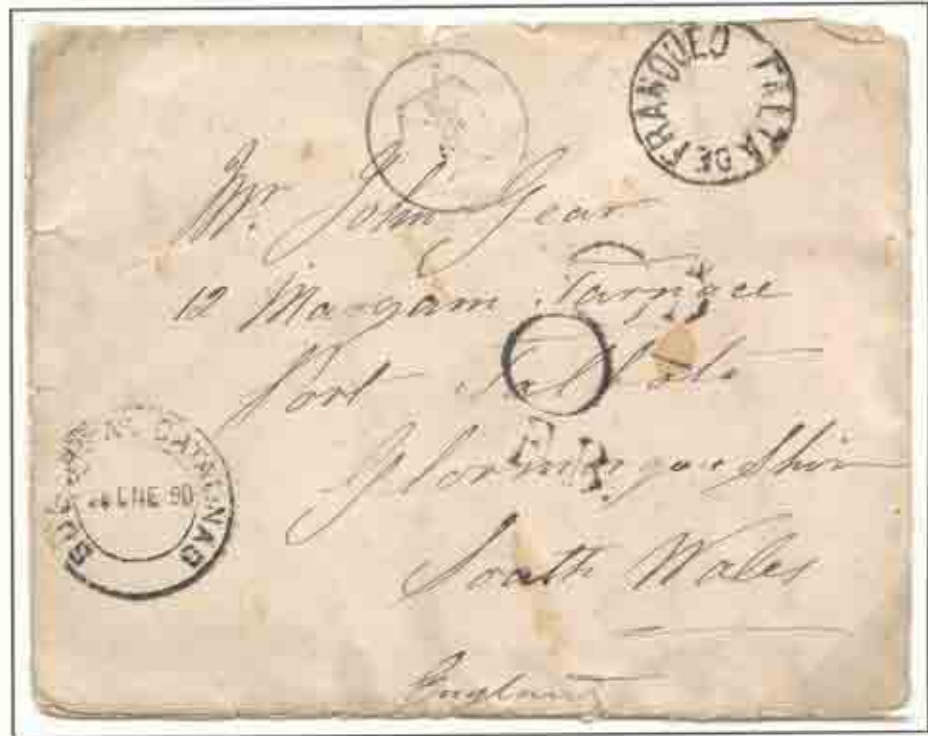 FALTA DE FRANQUEO
Mr. John Gear
12 Margam Tarrace
Port Talbot
Glormorgan Shire
South Wales
England
4 ENE 90